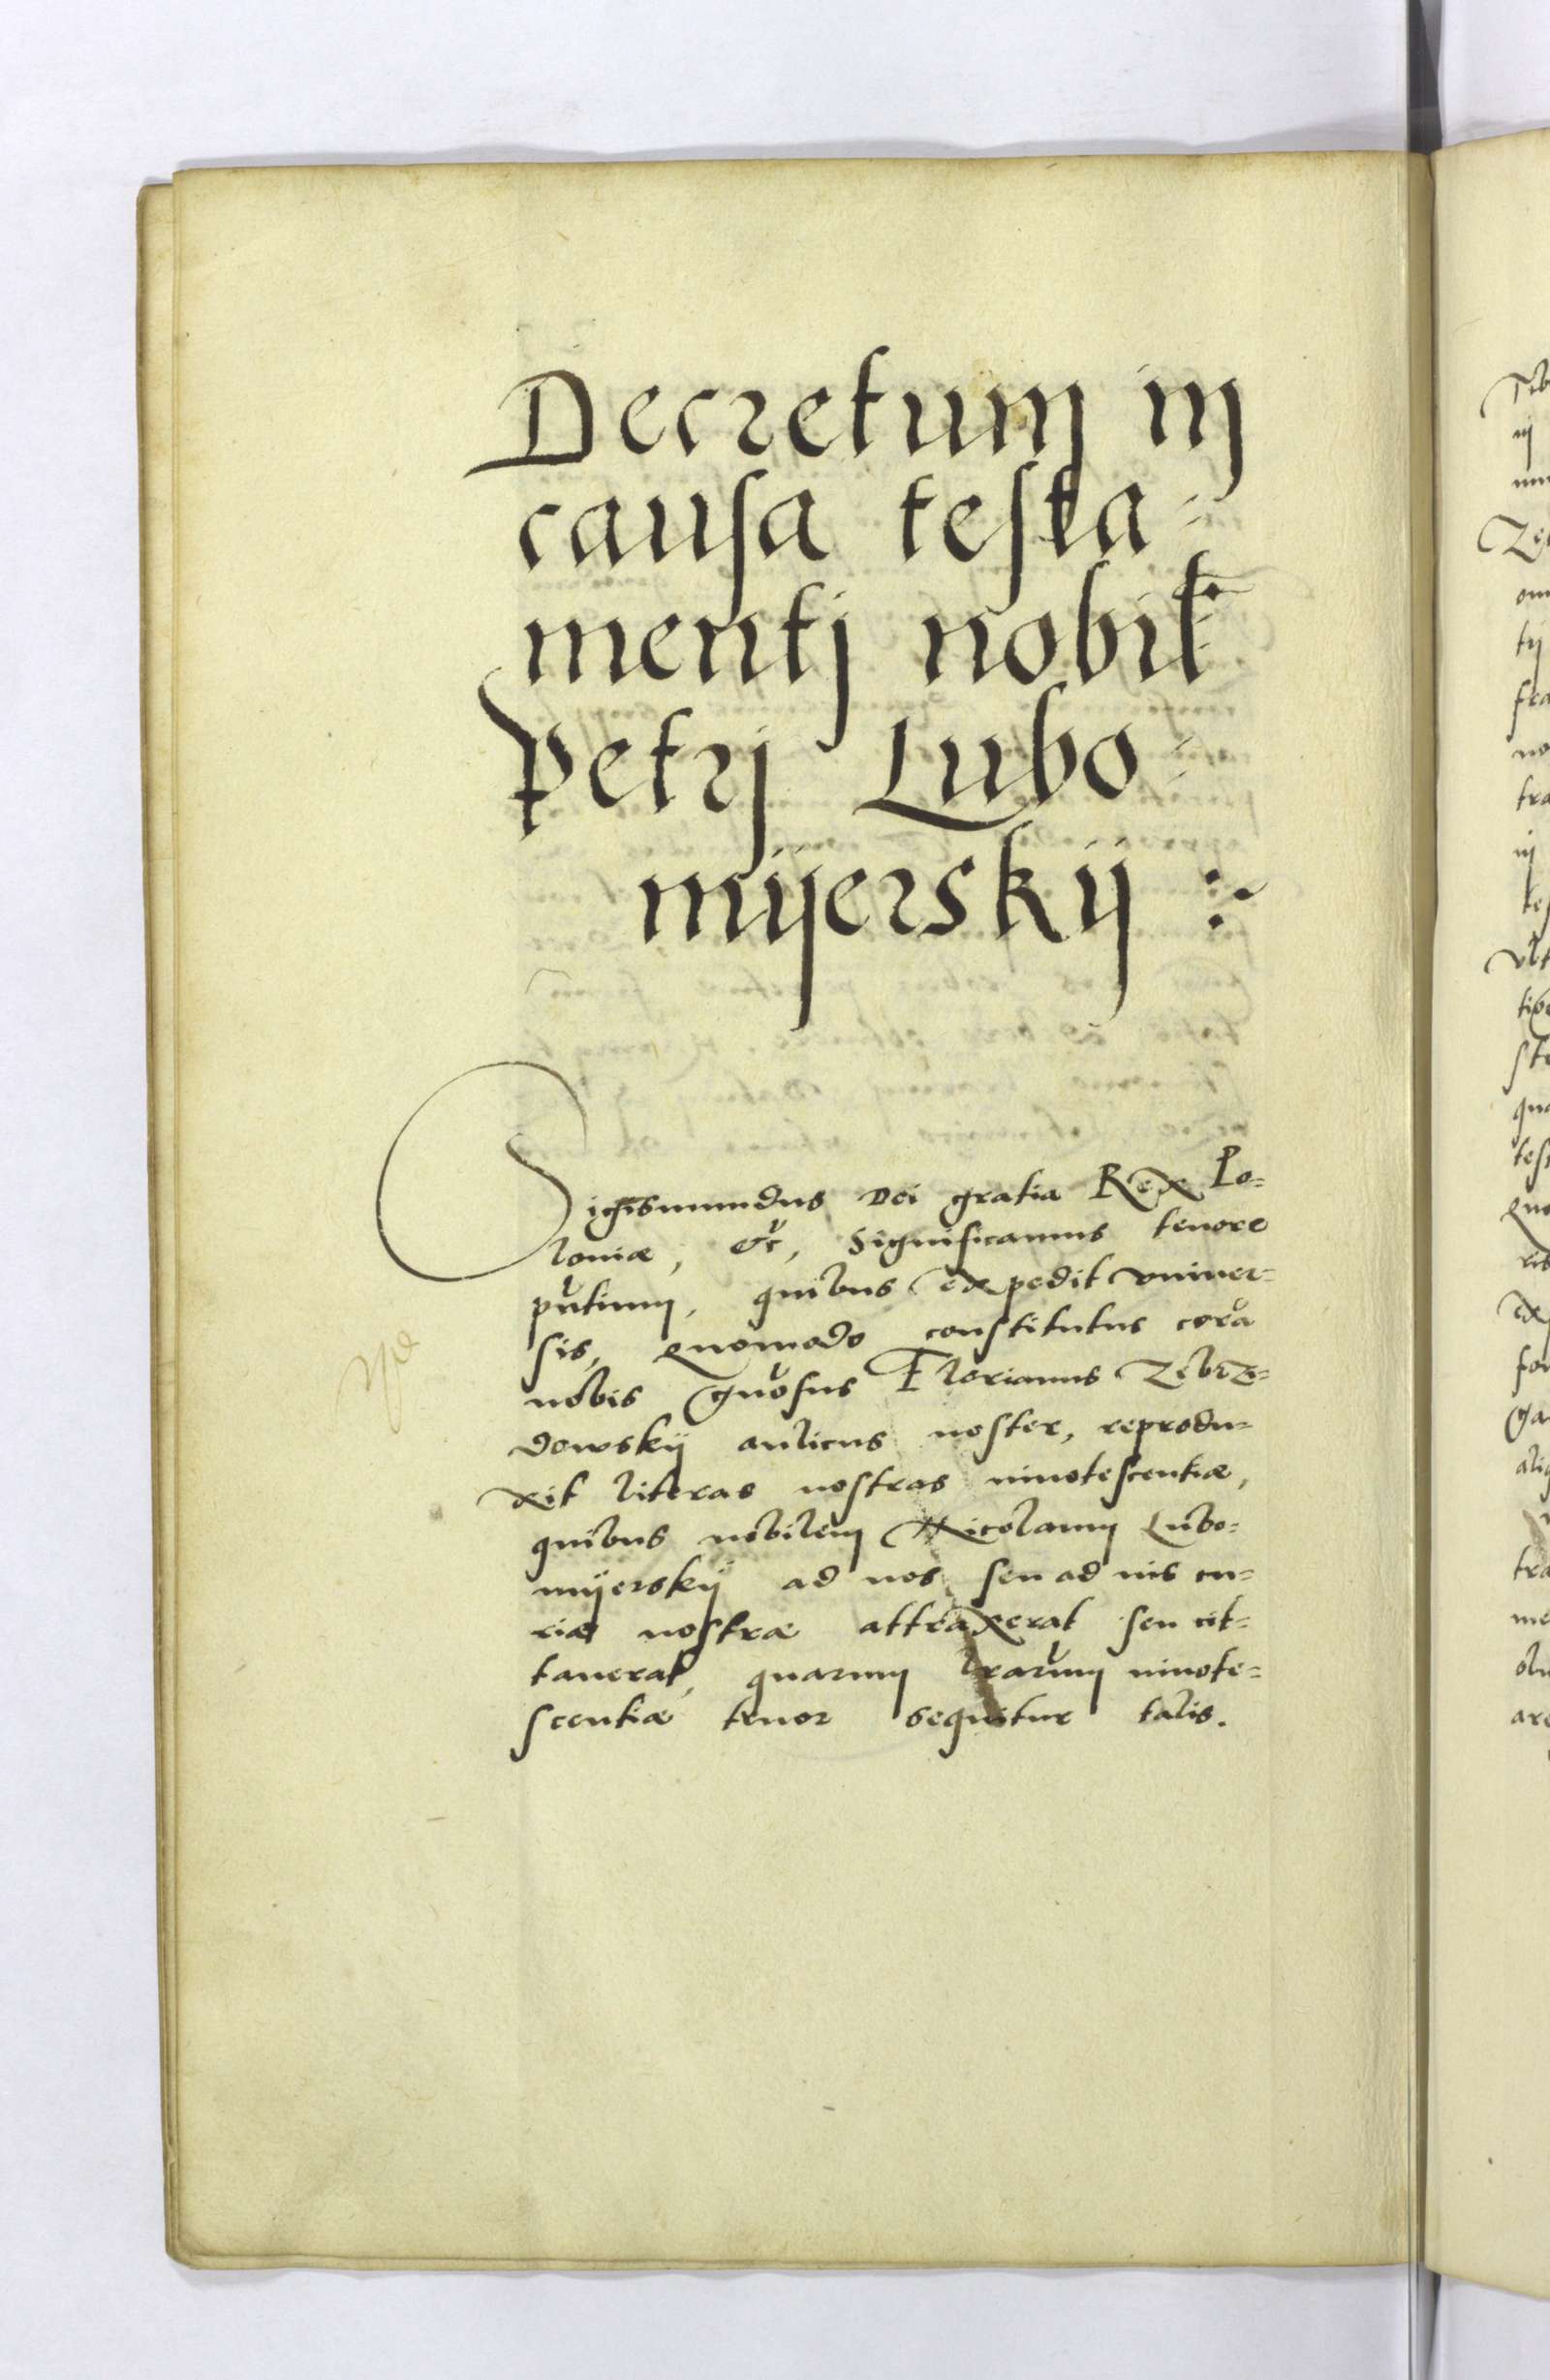 Decretum in
causa testa=
mentj nobil
Petrj Lubo=
mÿerskÿ :~
Sigismundus Dei gratia Rex Po=
loniæ, etc, Significamus tenore
pntium, quibus expedit vniuer=
sis, quomodo constitutus cora
nobis gnosus Florianus Zebrzi=
dowskÿ aulicus noster, reprodu=
xit literas nostras innotescentiæ,
quibus nobilem Nicolaum Lubo=
mÿerskÿ ad nos seu ad iuis cu=
riæ nostræ attraxerat seu cit=
tauerat, quarum lrarum innote=
scentiæ tenor sequitur talis.